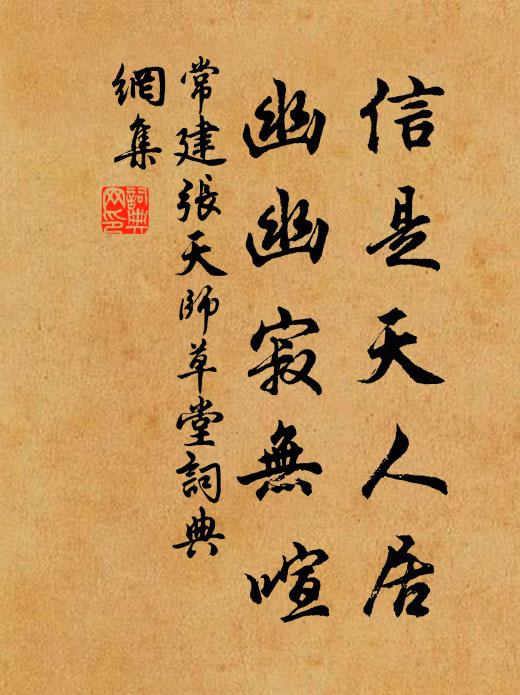 信是天人居
幽幽寂無喧
常建張天師草堂詞典
網集
詞典
网印